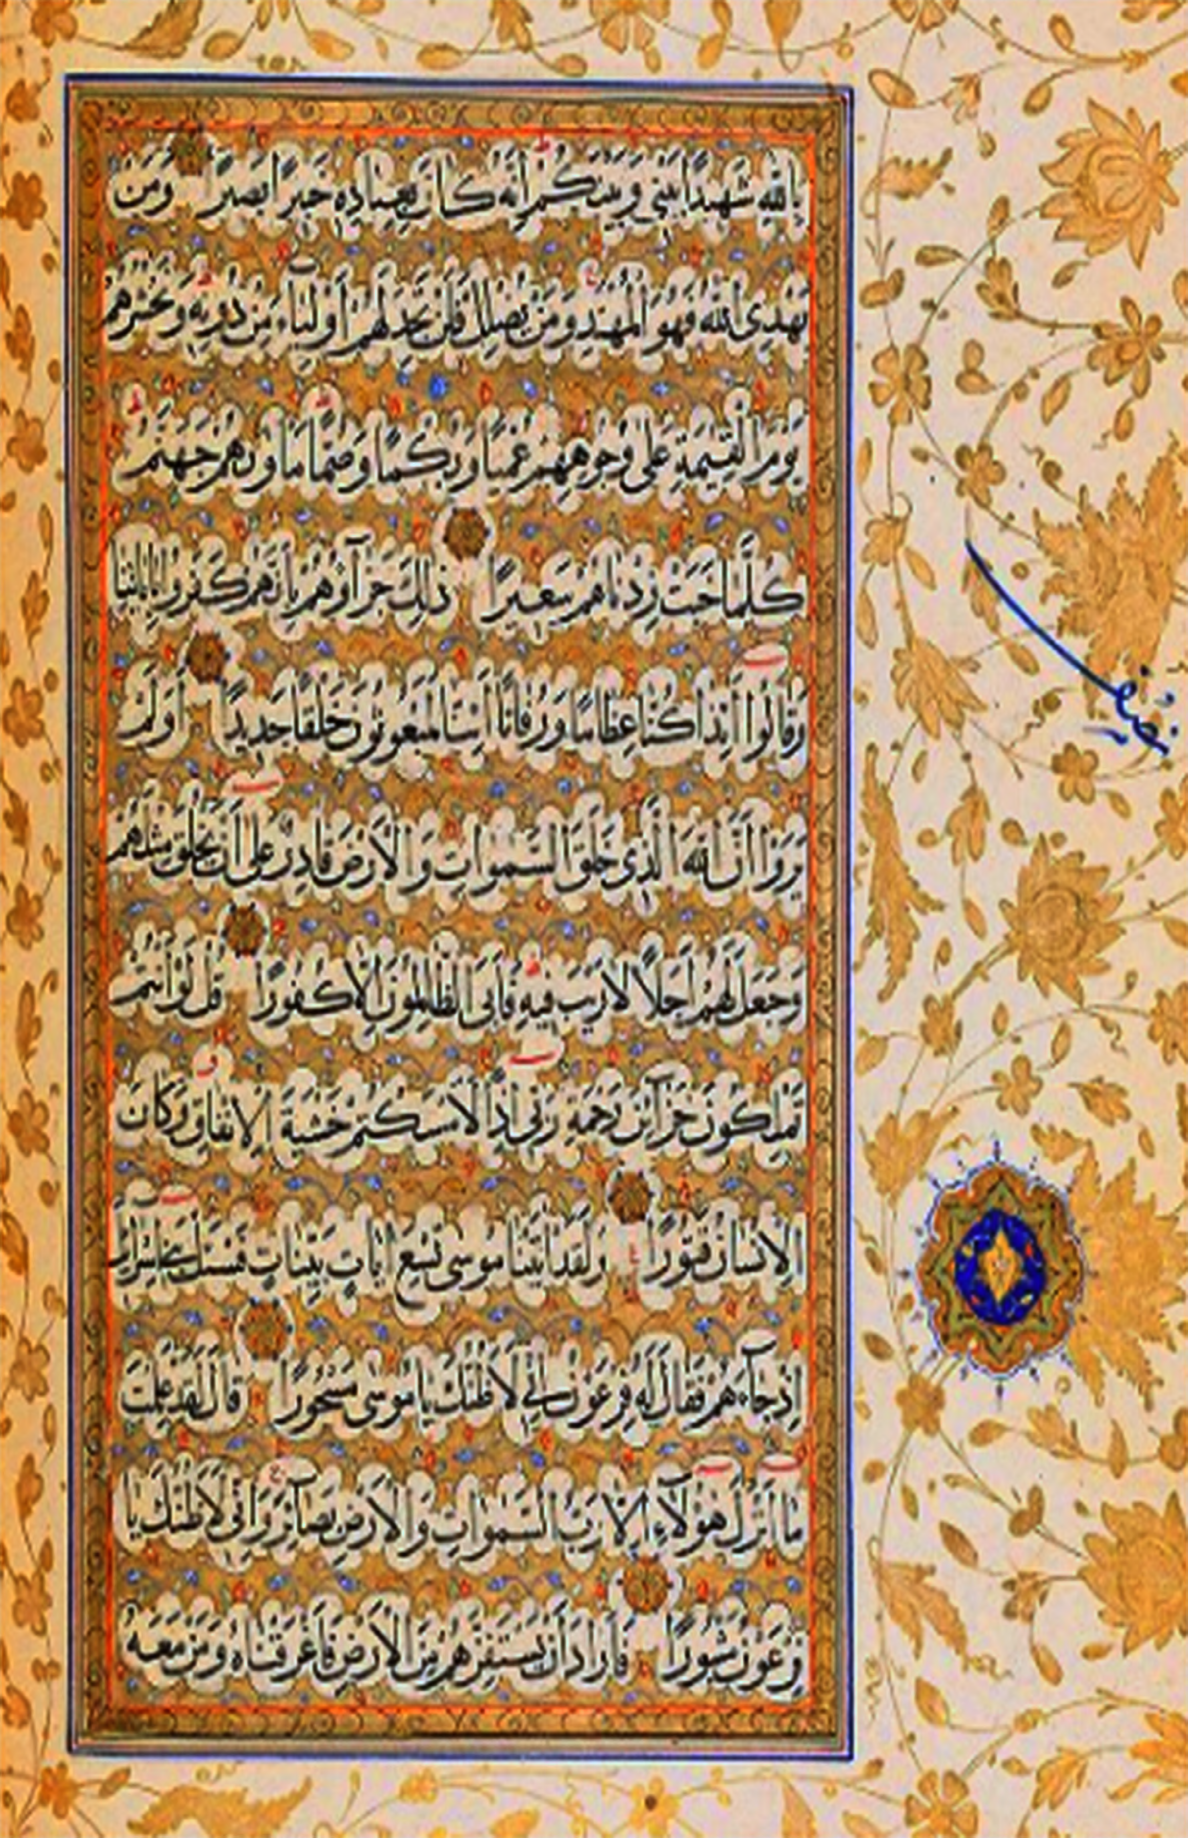 بِاللهِ شَهِيدًا بَيْنِي وَبَيْنَكُمْ إِنَّهُ كَانَ بِعِبَادِهِ خَبِيرًا بَصِيرًا وَمَنْ
يَهْدِى اللهُ فَهُوَ الْمُهْتَدِ وَمَنْ يُضْلِلْ فَلَنْ تَجِدَ لَهُمْ أَوْلِيَاءَ مِنْ دُونِهِ وَنَحْشُرُهُمْ
يَوْمَ الْقِيٰمَةِ عَلَى وُجُوهِهِمْ عُمْيًا وَبُكْمًا وَصُمًّا مَاوٰيهُمْ جَهَنَّمُ
كُلَّمَا خَبَتْ زِدْنَاهُمْ سَعِيرًا ذٰلِكَ جَزَآؤُهُمْ بِأَنَّهُمْ كَفَرُوا بِايَاتِنَا
وَقَالُوا أَئِذَا كُنَّا عِظَامًا وَرُفَاتًا أَئِنَّا لَمَبْعُوثُونَ خَلْقًا جَدِيدًا أَوَلَمْ
يَرَوْا أَنَّ اللهَ الَّذِى خَلَقَ السَّمٰوَاتِ وَالْأَرْضَ قَادِرٌ عَلَى أَنْ يَخْلُقَ مِثْلَهُمْ
وَجَعَلَ لَهُمْ أَجَلًا لَا رَيْبَ فِيهِ فَأَبَى الظَّالِمُونَ إِلَّا كُفُورًا قُلْ لَوْ أَنْتُمْ
تَمْلِكُونَ خَزَآئِنَ رَحْمَةِ رَبِّى إِذًا لَأَمْسَكْتُمْ خَشْيَةَ الْإِنْفَاقِ وَكَانَ
الْإِنْسَانُ قَتُورًا وَلَقَدْ اتَيْنَا مُوسَى تِسْعَ ايَاتٍ بَيِّنَاتٍ فَسْئَلْ بَنِى إِسْرَائِيلَ
إِذْ جَآءَهُمْ فَقَالَ لَهُ فِرْعَوْنُ إِنِّى لَأَظُنُّكَ يَا مُوسَى مَسْحُورًا قَالَ لَقَدْ عَلِمْتَ
مَا أَنْزَلَ هٰؤُلَآءِ إِلَّا رَبُّ السَّمٰوَاتِ وَالْأَرْضِ بَصَآئِرَ وَإِنِّى لَأَظُنُّكَ يَا
فِرْعَوْنُ مَثْبُورًا فَأَرَادَ أَنْ يَسْتَفِزَّهُمْ مِنَ الْأَرْضِ فَأَغْرَقْنَاهُ وَمَنْ مَعَهُ